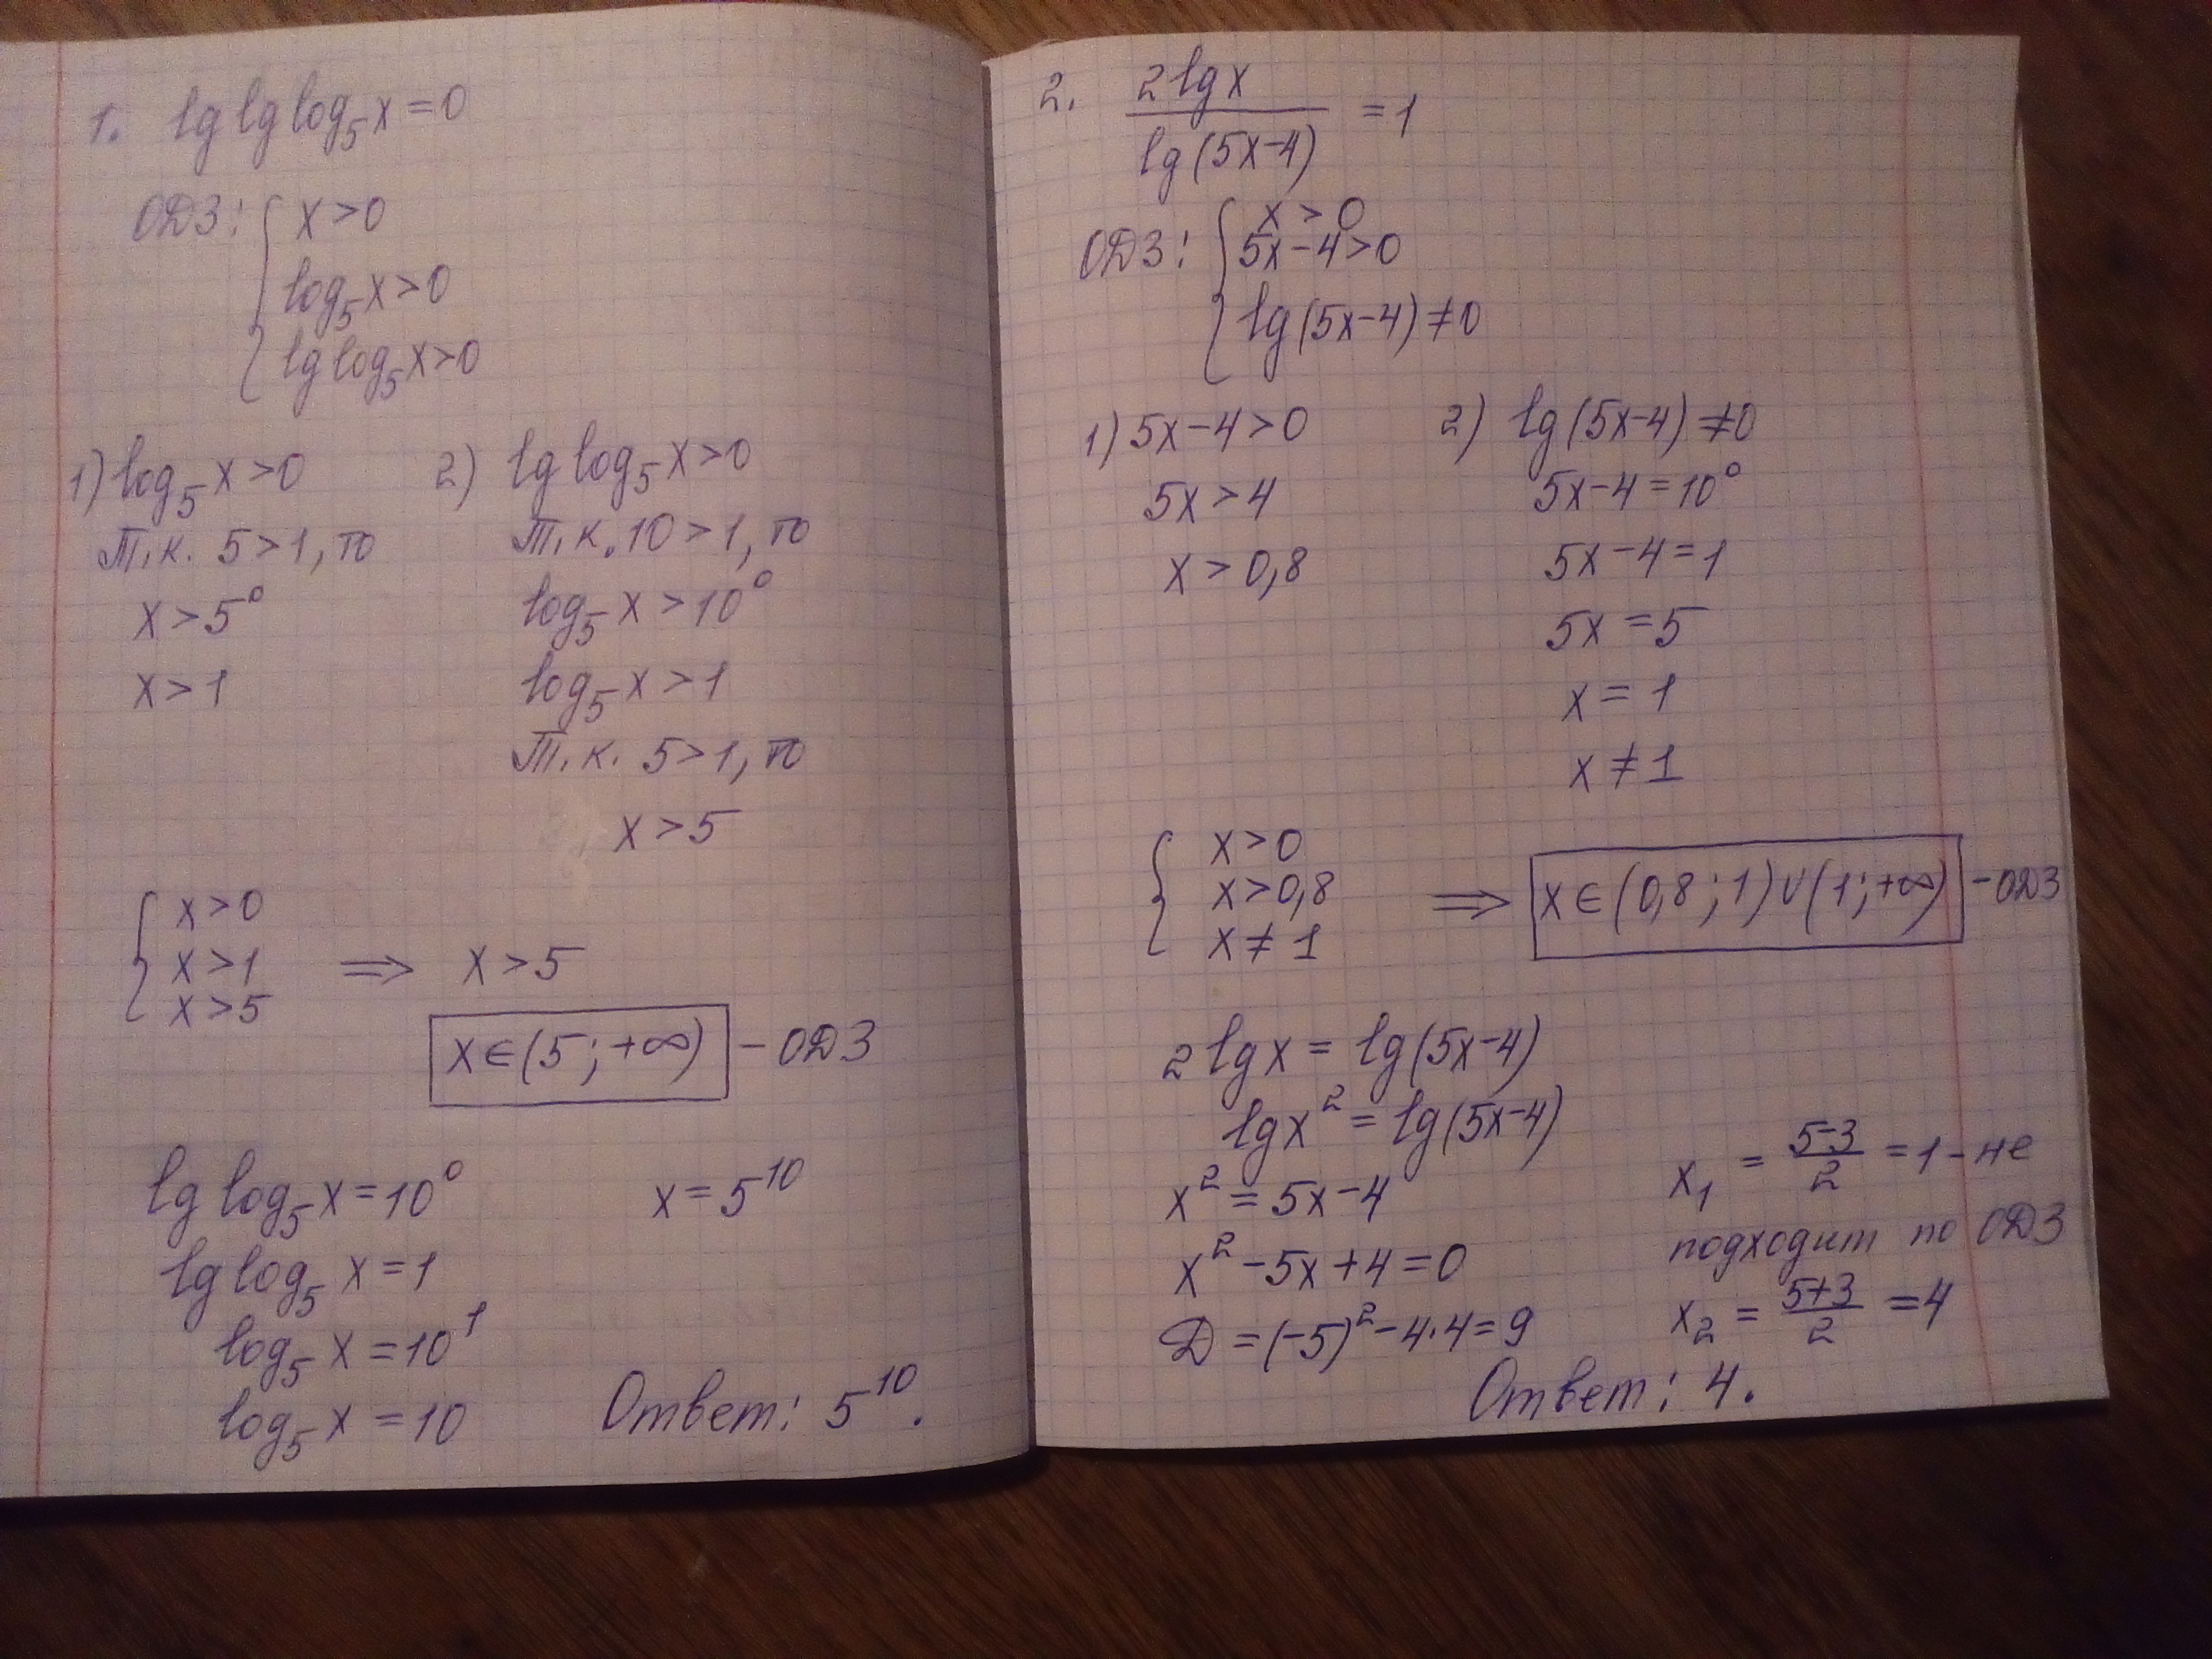 1. lg lg log₅x = 0
ОДЗ: { x > 0
log₅x > 0
lg log₅x > 0
1) log₅x > 0
Т.к. 5 > 1, то
x > 5⁰
x > 1
2) lg log₅x > 0
Т.к. 10 > 1, то
log₅x > 10⁰
log₅x > 1
Т.к. 5 > 1, то
x > 5
{ x > 0
x > 1
x > 5
⟹ x > 5
x ∈ (5; +∞) - ОДЗ
lg log₅x = 10⁰
lg log₅x = 1
log₅x = 10¹
log₅x = 10
x = 5¹⁰
Ответ: 5¹⁰.
2. 2lgx / lg(5x-4) = 1
ОДЗ: { x > 0
5x-4 > 0
lg(5x-4) ≠ 0
1) 5x-4 > 0
5x > 4
x > 0,8
2) lg(5x-4) ≠ 0
5x-4 = 10⁰
5x-4 = 1
5x = 5
x = 1
x ≠ 1
{ x > 0
x > 0,8
x ≠ 1
⟹ x ∈ (0,8; 1) ∪ (1; +∞) - ОДЗ
2 lgx = lg(5x-4)
lgx² = lg(5x-4)
x² = 5x-4
x² - 5x + 4 = 0
Д = (-5)² - 4·4 = 9
x₁ = (5-3)/2 = 1 - не
подходит по ОДЗ
x₂ = (5+3)/2 = 4
Ответ: 4.